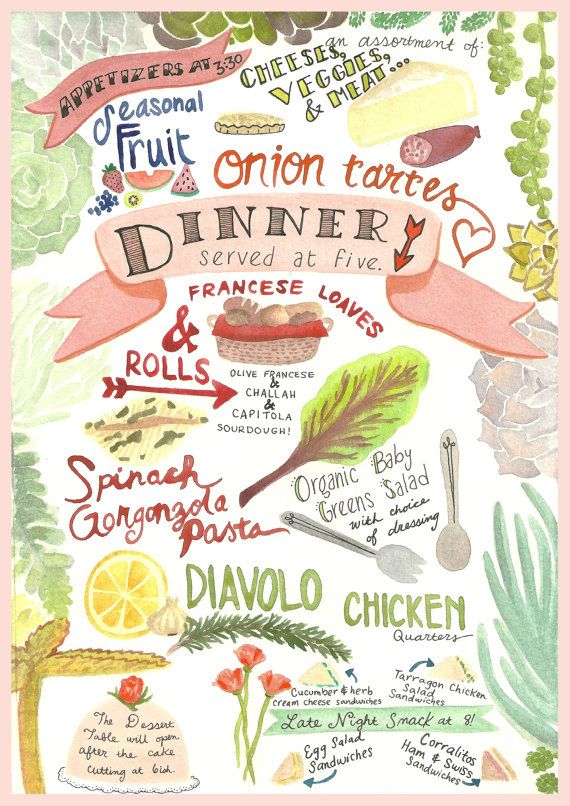 APPETIZERS AT 3:30
an assortment of:
CHEESES,
VEGGIES,
& MEAT...
Seasonal
Fruit
Onion tartes
DINNER
served at five.
FRANCESE LOAVES
&
ROLLS
OLIVE FRANCESE
&
CHALLAH
&
CAPITOLA
SOURDOUGH!
Spinach
Gorgonzola
Pasta
Organic Baby
Greens Salad
with choice
of dressing
DIAVOLO
CHICKEN
Quarters
Cucumber & herb
cream cheese sandwiches
Tarragon Chicken
Salad
Sandwiches
Late Night Snack at 8!
Egg Salad
Sandwiches
Corralitos
Ham & Swiss
Sandwiches
The Dessert
Table will open
after the cake
cutting at 6ish.